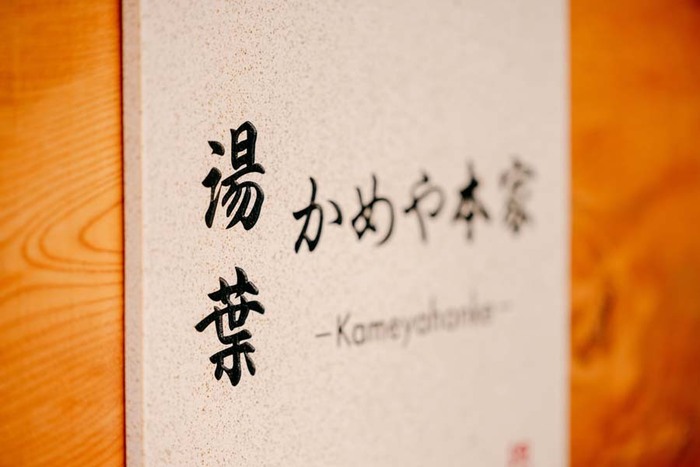 湯葉
かめや本家
-Kameyahonke-